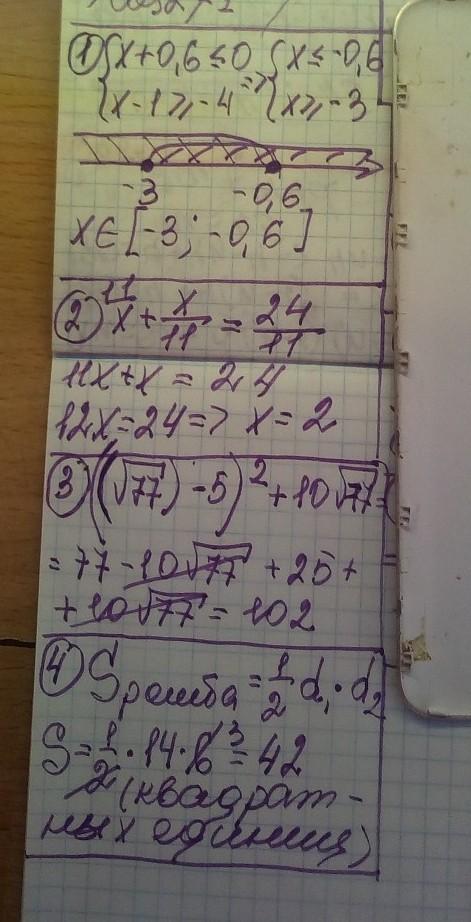 ① { x + 0,6 ≤ 0 => { x ≤ -0,6
{ x - 1 ≥ -4 { x ≥ -3
-3 -0,6
x ∈ [-3; -0,6]
② 11 x + x/11 = 24/11
11x + x = 24
12x = 24 => x = 2
③ ((√77) - 5)² + 10√77 =
= 77 - 10√77 + 25 +
+ 10√77 = 102
④ S ромба = 1/2 d₁ · d₂
S = 1/2 · 14 · 6 3 = 42
(квадрат-
ных единиц)